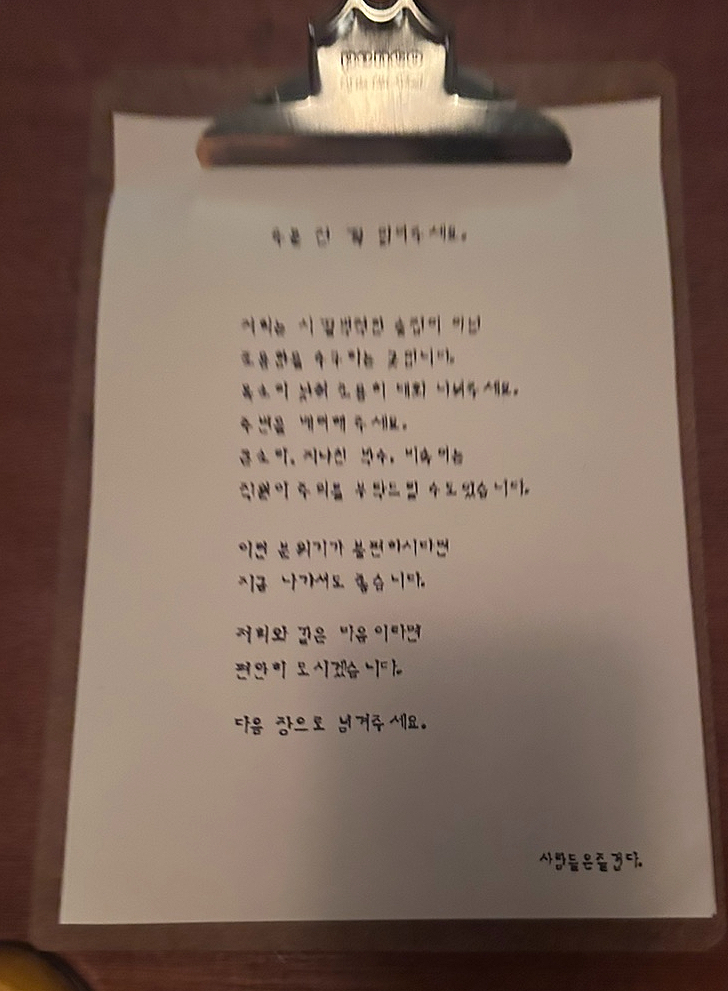 주문 전 꼭 읽어주세요.
저희는 시끌벅적한 술집이 아닌
조용함을 추구하는 곳입니다.
목소리 낮춰 조용히 대화 나눠주세요.
주변을 배려해 주세요.
큰소리, 지나친 박수, 비속어는
직원이 주의를 부탁드릴 수도 있습니다.
이런 분위기가 불편하시다면
지금 나가셔도 좋습니다.
저희와 같은 마음이라면
편안히 모시겠습니다.
다음 장으로 넘겨주세요.
사람들은즐겁다.